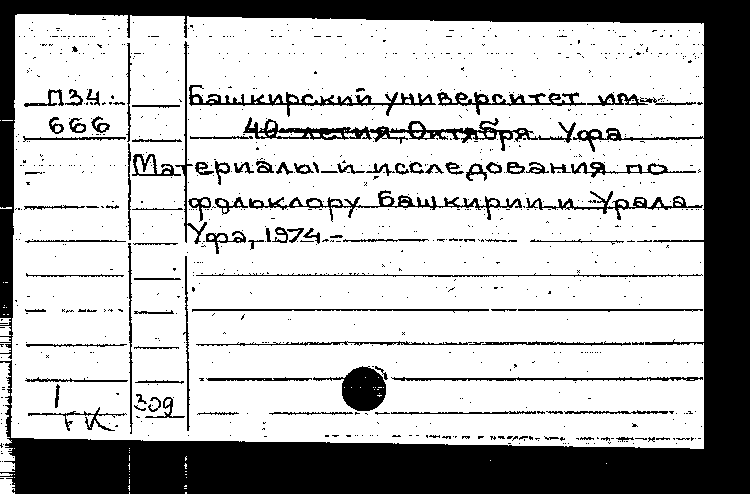 П34. Башкирский университет им
666 40-летия Октября. Уфа
Материалы и исследования по
фольклору Башкирии и Урала
Уфа, 1974 –
1
FK 309